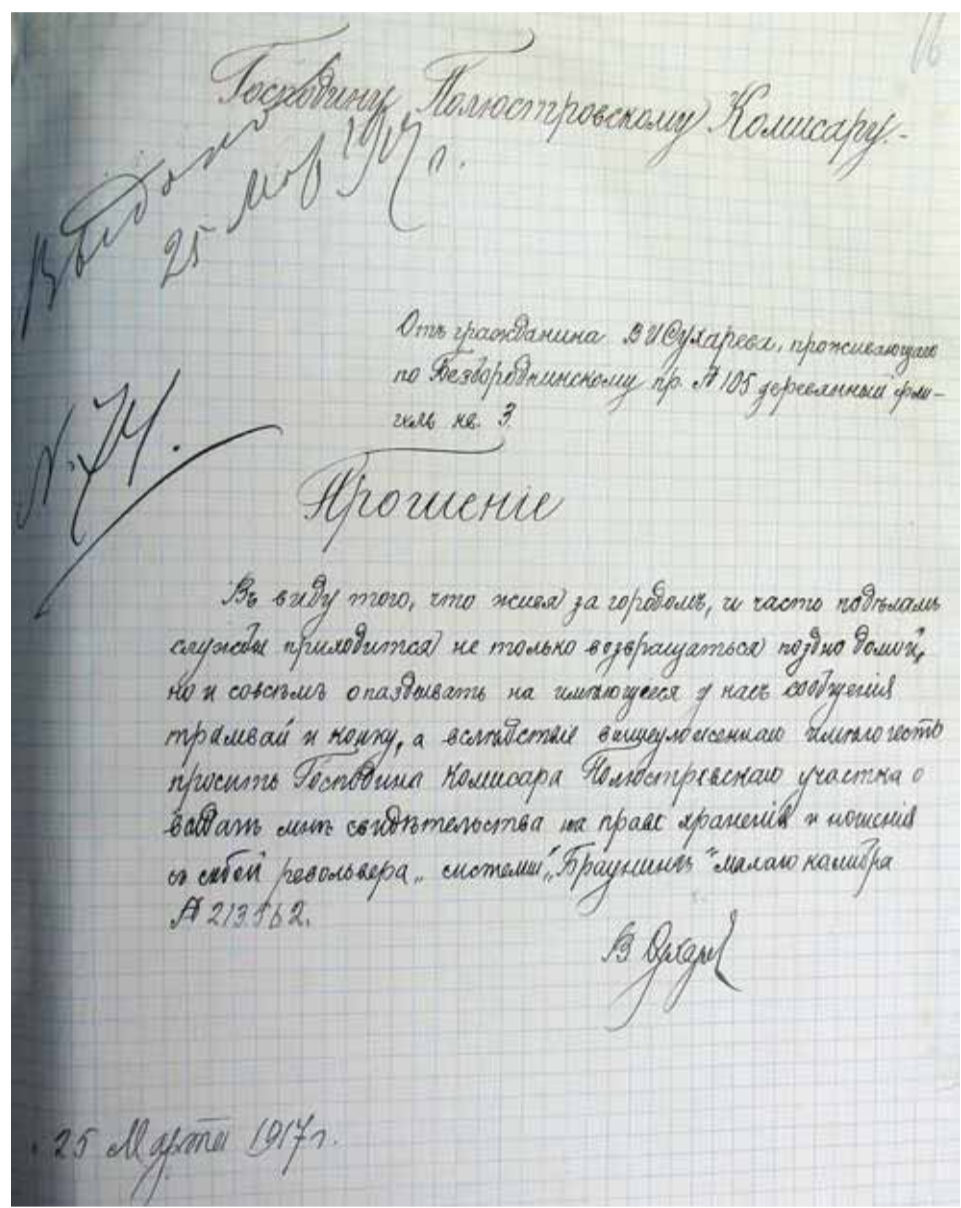 16
Господину Полюстровскому Комисару.-
Выдано
25 мар 1917 г.
Отъ гражданина В И Сухарева, проживающаго
по Безбородкинскому пр. № 105 деревянный фли-
гель кв. 3
N. 74.
Прошеніе
Въ виду того, что живя за городомъ, и часто подѣламъ
службы приходится не только возвращаться поздно домой,
но и совсѣмъ опаздывать на имѣющееся у насъ сообщенія
трамвай и конку, а вслѣдствіе вышеуложеннаго имѣю честь
просить Господина Комисара Полюстровскаго участка о
выдать мнѣ свидѣтельства на право храненія и ношенія
съ собой револьвера „ системы „Браунингъ" малаго калибра
№ 213.562.
В Сухарев
25 Марта 1917 г.